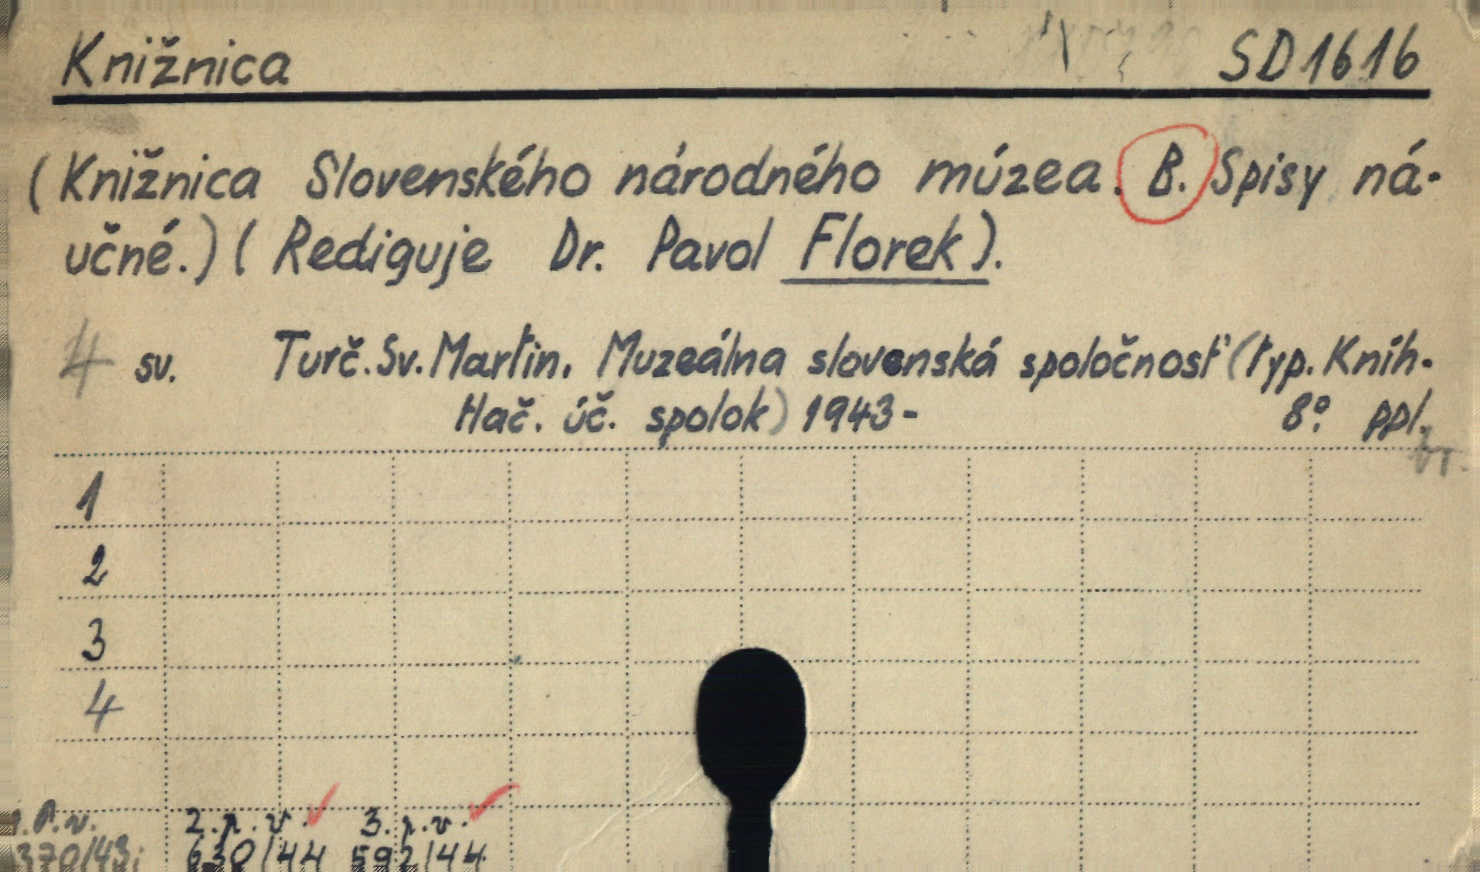 Knižnica SD1616
(Knižnica Slovenského národného múzea. B. Spisy ná-
učné.) (Rediguje Dr. Pavol Florek).
4 sv. Turč. Sv. Martin. Muzeálna slovenská spoločnosť (typ. Kníh-
tlač. úč. spolok) 1943- 8° ppl.
br.
1
2
3
4
2. p. v. 3. p. v.
370/43; 630/44 592/44